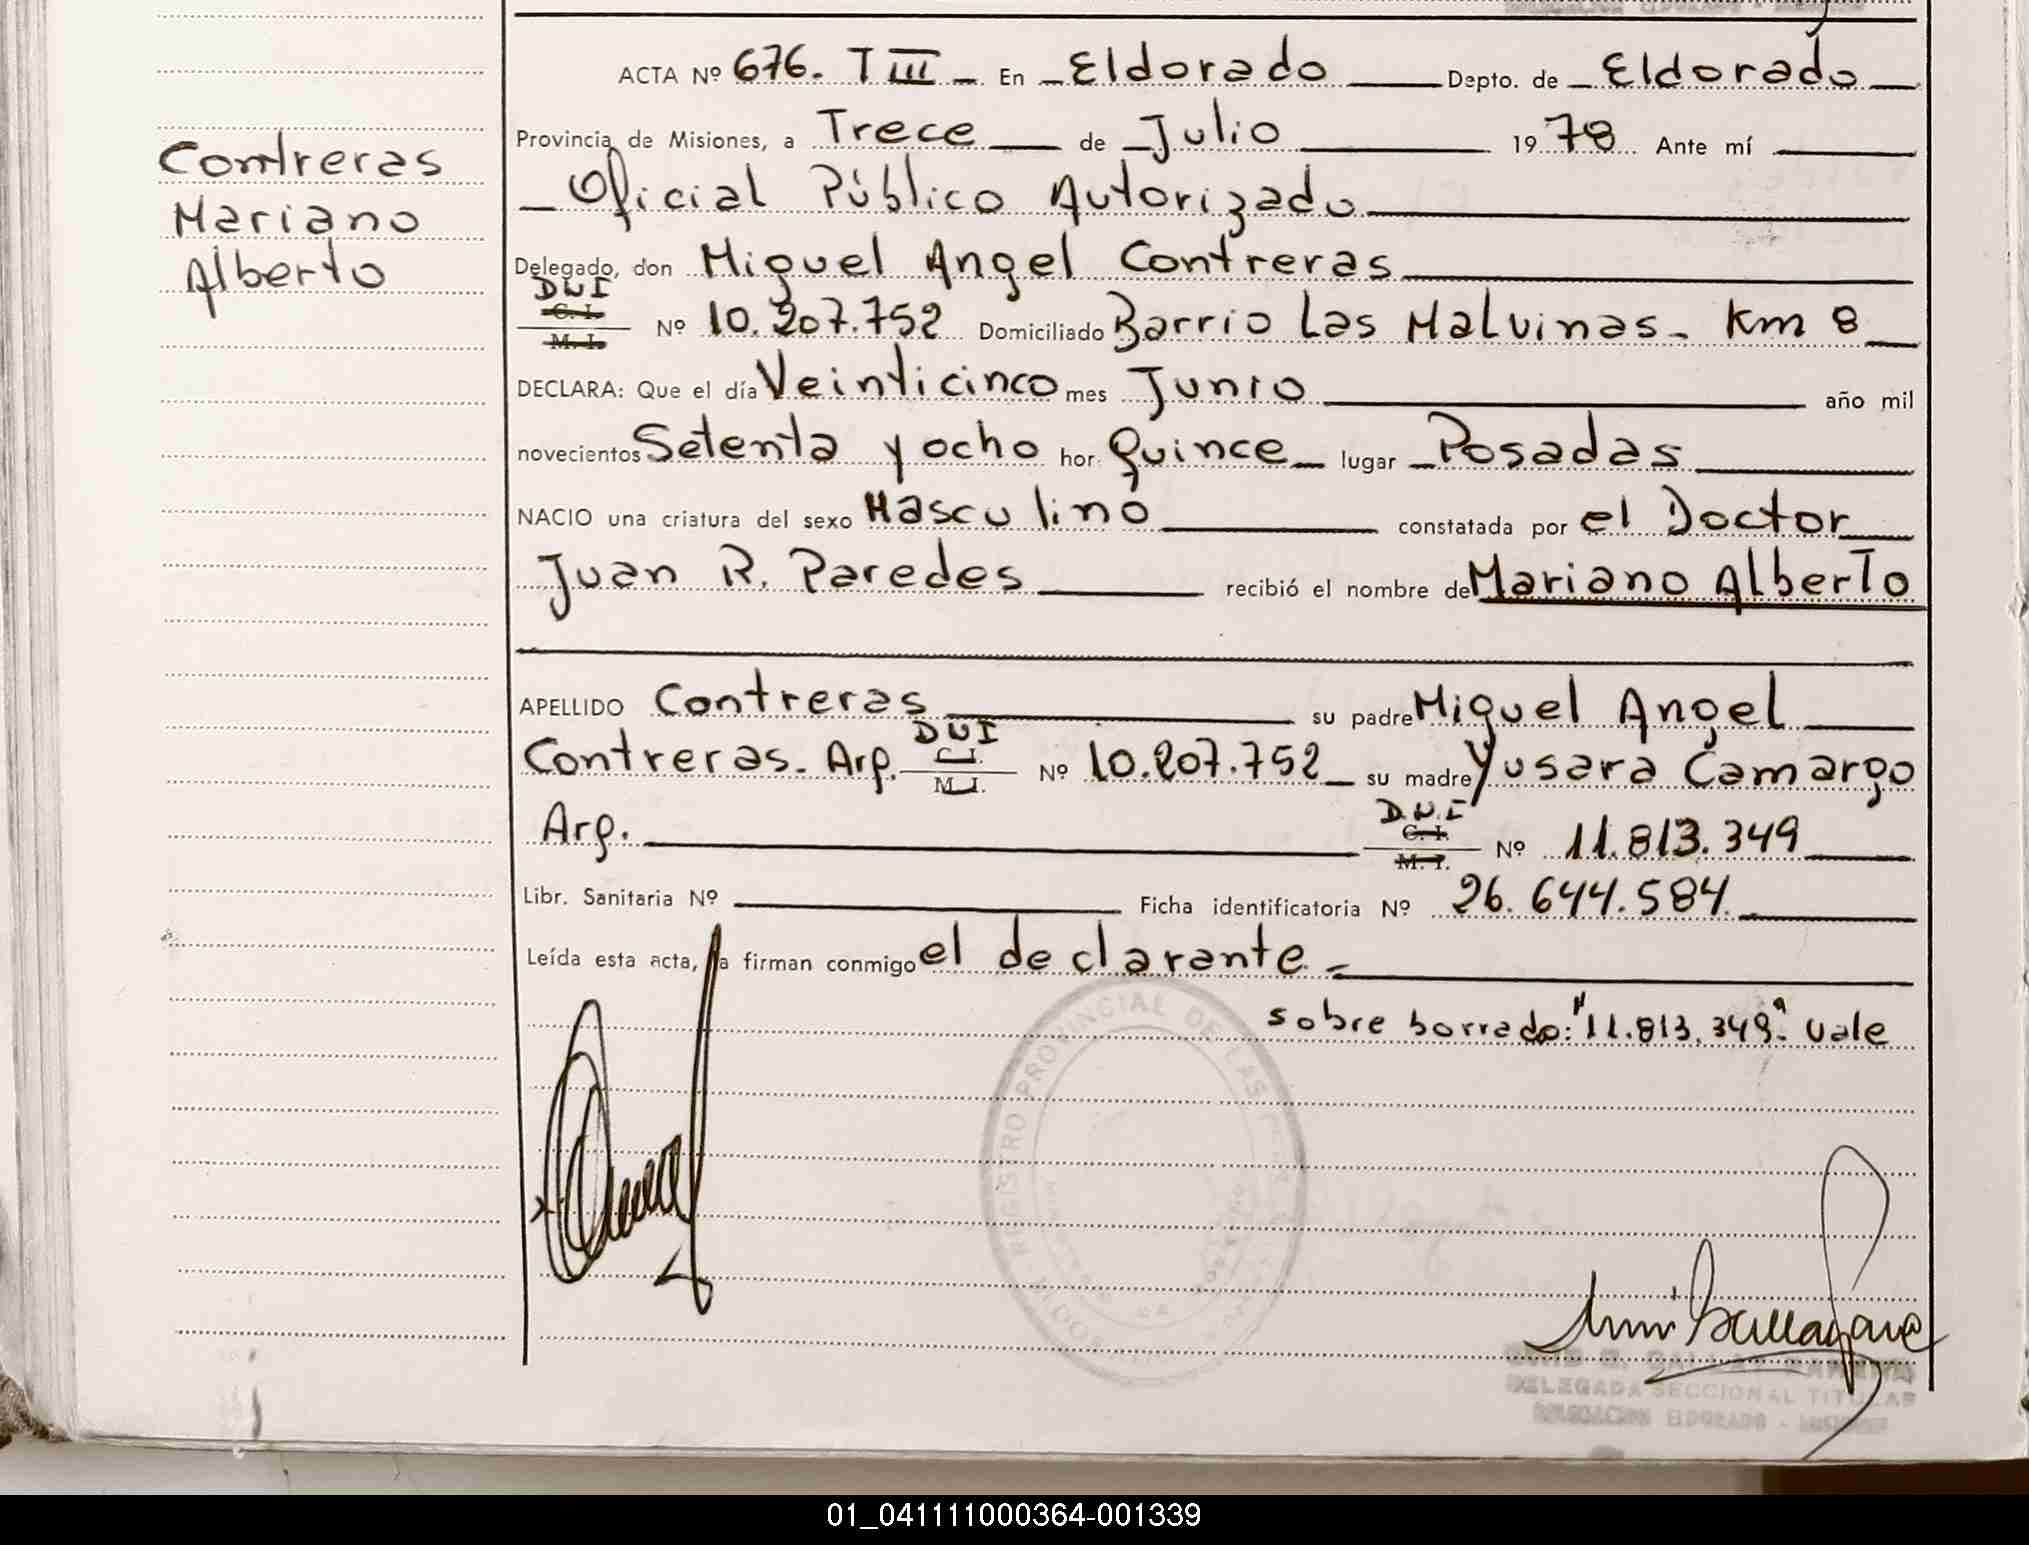 ACTA Nº 676. T III - En - Eldorado Depto. de - Eldorado
Provincia de Misiones, a Trece de Julio 1978 Ante mí
Oficial Público Autorizado
Delegado, don Miguel Angel Contreras
DNI
C. I.
M. I.
Nº 10.207.752 Domiciliado Barrio Las Malvinas - Km 8
DECLARA: Que el día Veinticinco mes Junio año mil
novecientos Setenta y ocho hor. Quince lugar Posadas
NACIO una criatura del sexo Masculino constatada por el Doctor
Juan R. Paredes recibió el nombre de Mariano Alberto
APELLIDO Contreras su padre Miguel Angel
Contreras. Arg. DNI C.I. M.I. Nº 10.207.752 su madre Yusara Camargo
Arg. D.N.I C. I. M. I. Nº 11.813.349
Libr. Sanitaria Nº Ficha identificatoria Nº 26.644.584
Leída esta acta, la firman conmigo el declarante. -
sobre borrado: "11.813.349" vale
Contreras
Mariano
Alberto
REGISTRO PROVINCIAL DE LAS
DELEGADA SECCIONAL TITULAR
DELEGACION ELDORADO - MISIONES
01_041111000364-001339